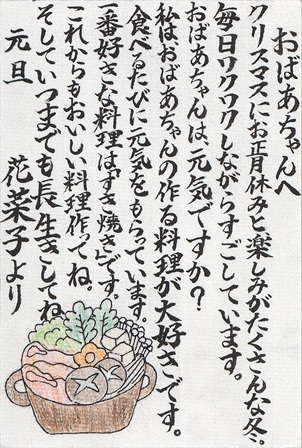 おばあちゃんへ
クリスマスにお正月休みと楽しみがたくさんな冬、
毎日ワクワクしながらすごしています。
おばあちゃんは元気ですか?
私はおばあちゃんの作る料理が大好きです。
食べるたびに元気をもらっています。
一番好きな料理は、「すき焼き」です。
これからもおいしい料理作ってね。
そしていつまでも長生きしてね
元旦　花菜子より